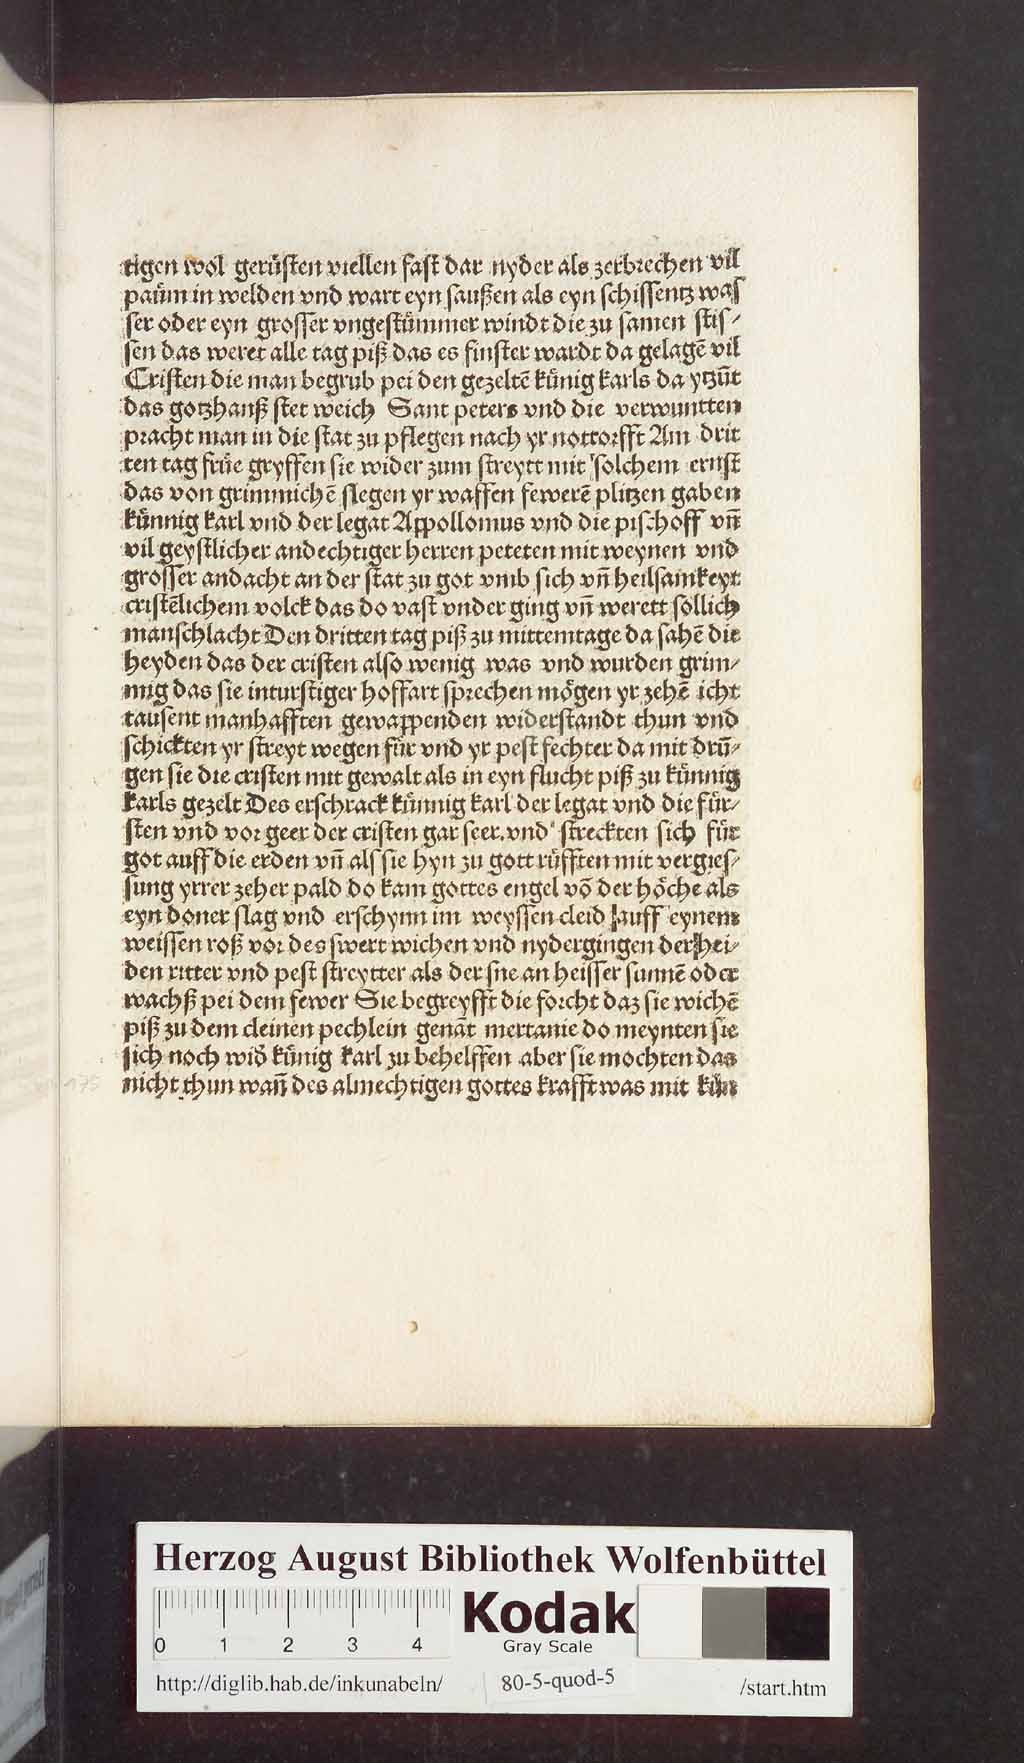 tigen wol gerüsten viellen fast dar nyder als zerbrechen vil
paüm in welden vnd wart eyn saußen als eyn schissentz was
ser oder eyn grosser vngestümmer windt die zu samen stis-
sen das weret alle tag piß das es finster wardt da gelagē vil
Cristen die man begrub pei den gezeltē künig karls da ytzūt
das gotzhanß stet weich Sant peters vnd die verwuntten
pracht man in die stat zu pflegen nach yr nottorfft Am drit
ten tag früe gryffen sie wider zum streytt mit solchem ernst
das von grimmichē slegen yr waffen fewerē plitzen gaben
künnig karl vnd der legat Appollomus vnd die pischoff vn̄
vil geystlicher andechtiger herren peteten mit weynen vnd
grosser andacht an der stat zu got vmb sich vn̄ heilsamkeyt
cristēlichem volck das do vast vnder ging vn̄ werett söllich
manschlacht Den dritten tag piß zu mittemtage da sahē die
heyden das der cristen also wenig was vnd wurden grim-
mig das sie inturstiger hoffart sprechen mögen yr zehē icht
tausent manhafften gewappenden widerstandt thun vnd
schickten yr streyt wegen für vnd yr pest fechter da mit drū-
gen sie die cristen mit gewalt als in eyn flucht piß zu künnig
karls gezelt Des erschrack künnig karl der legat vnd die für-
sten vnd vor geer der cristen gar seer. vnd streckten sich für
got auff die erden vn̄ als sie hyn zu gott rüfften mit vergies-
sung yrrer zeher pald do kam gottes engel vō der höche als
eyn doner slag vnd erschynn im weyssen cleid auff eynem
weissen roß vor des swert wichen vnd nydergingen der hei-
den ritter vnd pest streytter als der sne an heisser sunnē oder
wachß pei dem fewer Sie begreyfft die forcht daz sie wichē
piß zu dem cleinen pechlein genāt mertanie do meynten sie
sich noch wid̄ künig karl zu behelffen aber sie mochten das
nicht thun wan̄ des almechtigen gottes krafft was mit kün
175
Herzog August Bibliothek Wolfenbüttel
0 1 2 3 4
Kodak
Gray Scale
http://diglib.hab.de/inkunabeln/ 80-5-quod-5 /start.htm